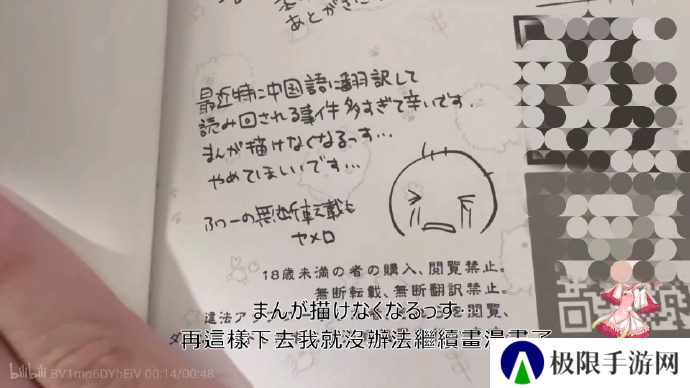 あとがきに
最近特に中国語に翻訳して
読み回される事件多すぎて辛いです.
まんが描けなくなるっす…
やめてほしいです…
ふつーの無断転載も
ヤメロ
18歳未満の者の購入、閲覧禁止。
無断転載、無断翻訳禁止。
違法ア
を閲覧、
まんが描けなくなるっす…
再這樣下去我就沒辦法繼續畫漫畫了
bilibili BV1mp6DYhEiV 00:14/00:48
极限手游网